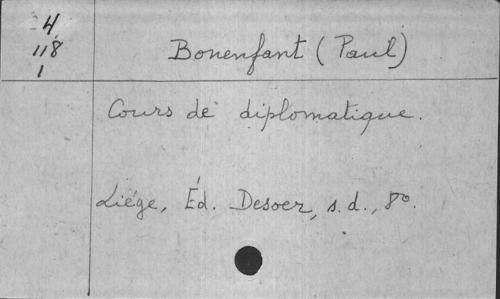 4
118
1
Bonenfant (Paul)
Cours de diplomatique.
Liége, Éd. Desoer, s.d., 8º.